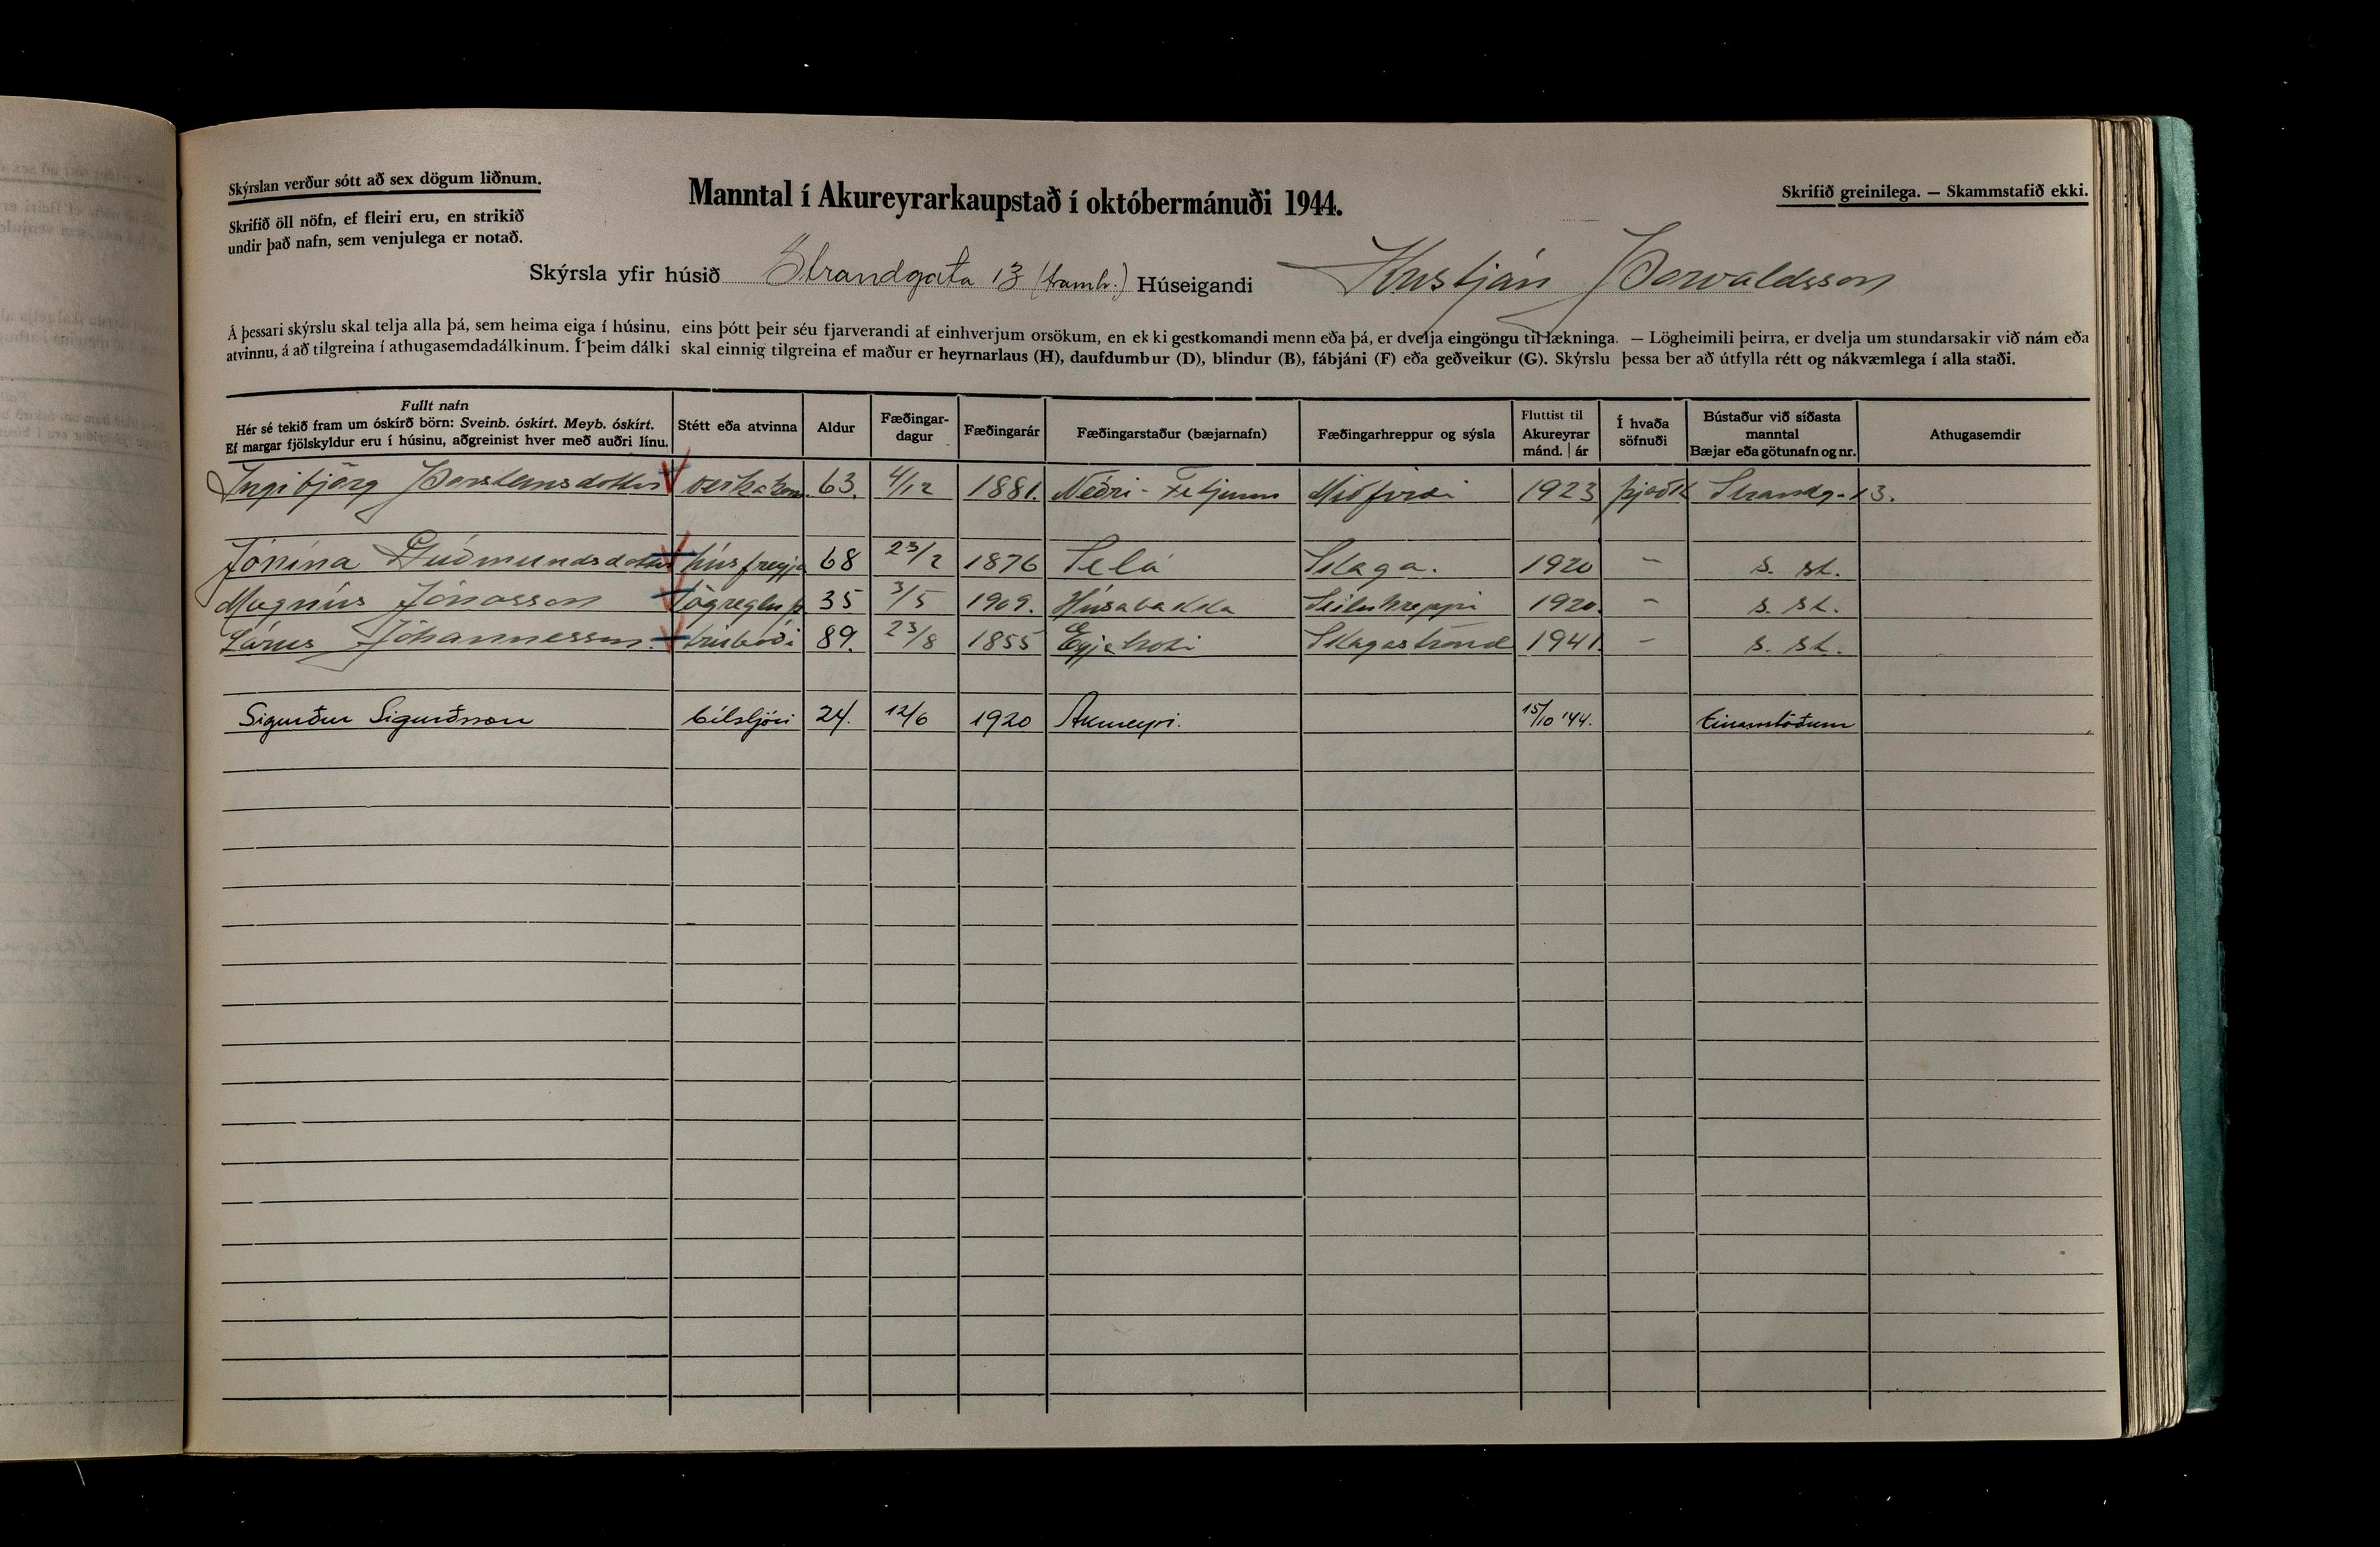 Skýrslan verður sótt að sex dögum liðnum.
Skrifið öll nöfn, ef fleiri eru, en strikið
undir það nafn, sem venjulega er notað.
Manntal í Akureyrarkaupstað í októbermánuði 1944.
Skrifið greinilega. — Skammstafið ekki.
Skýrsla yfir húsið Strandgata 13 (framh.) Húseigandi Kristján Þorvaldsson
Á þessari skýrslu skal telja alla þá, sem heima eiga í húsinu, eins þótt þeir séu fjarverandi af einhverjum orsökum, en ekki gestkomandi menn eða þá, er dvelja eingöngu til lækninga. — Lögheimili þeirra, er dvelja um stundarsakir við nám eða
atvinnu, á að tilgreina í athugasemdadálkinum. Í þeim dálki skal einnig tilgreina ef maður er heyrnarlaus (H), daufdumbur (D), blindur (B), fábjáni (F) eða geðveikur (G). Skýrslu þessa ber að útfylla rétt og nákvæmlega í alla staði.
Fullt nafn
Hér sé tekið fram um óskírð börn: Sveinb. óskírt. Meyb. óskírt.
Ef margar fjölskyldur eru í húsinu, aðgreinist hver með auðri línu.
Stétt eða atvinna
Aldur
Fæðingar-
dagur
Fæðingarár
Fæðingarstaður (bæjarnafn)
Fæðingarhreppur og sýsla
Fluttist til
Akureyrar
mánd. | ár
Í hvaða
söfnuði
Bústaður við síðasta
manntal
Bæjar eða götunafn og nr.
Athugasemdir
Ingibjörg Þorsteinsdóttir verkakon. 63. 4/12 1881. Neðri- Miðfirði 1923 þjóðk Strandg. 13.
Jónína Guðmundsdóttir húsfreyja 68 23/2 1876 Selá Skaga. 1920 – s. st.
Magnús Jónasson lögregluþ 35 3/5 1909. Húsabakka Seiluhreppi 1920. – s. st.
Lárus Jóhannesson. trúboði 89. 23/8 1855 Skagaströnd 1941. – s. st.
Sigurður Sigurðsson bílstjóri 24. 12/6 1920 Akureyri. 15/10 '44. Einarsstöðum